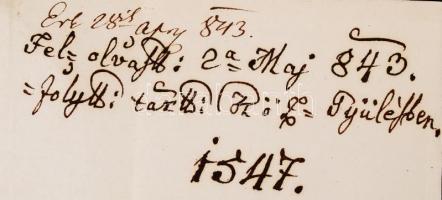 Erk 28ik Apr 843.
Fel olvast: 2a Maj 843.
=folytt: tartt: Köz= Gyülésben,
1547.